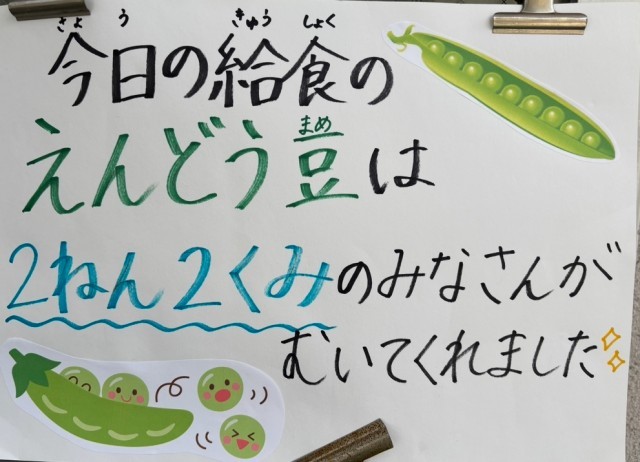 きょう きゅうしょく
今日の給食の
まめ
えんどう豆は
2ねん2くみのみなさんが
むいてくれました